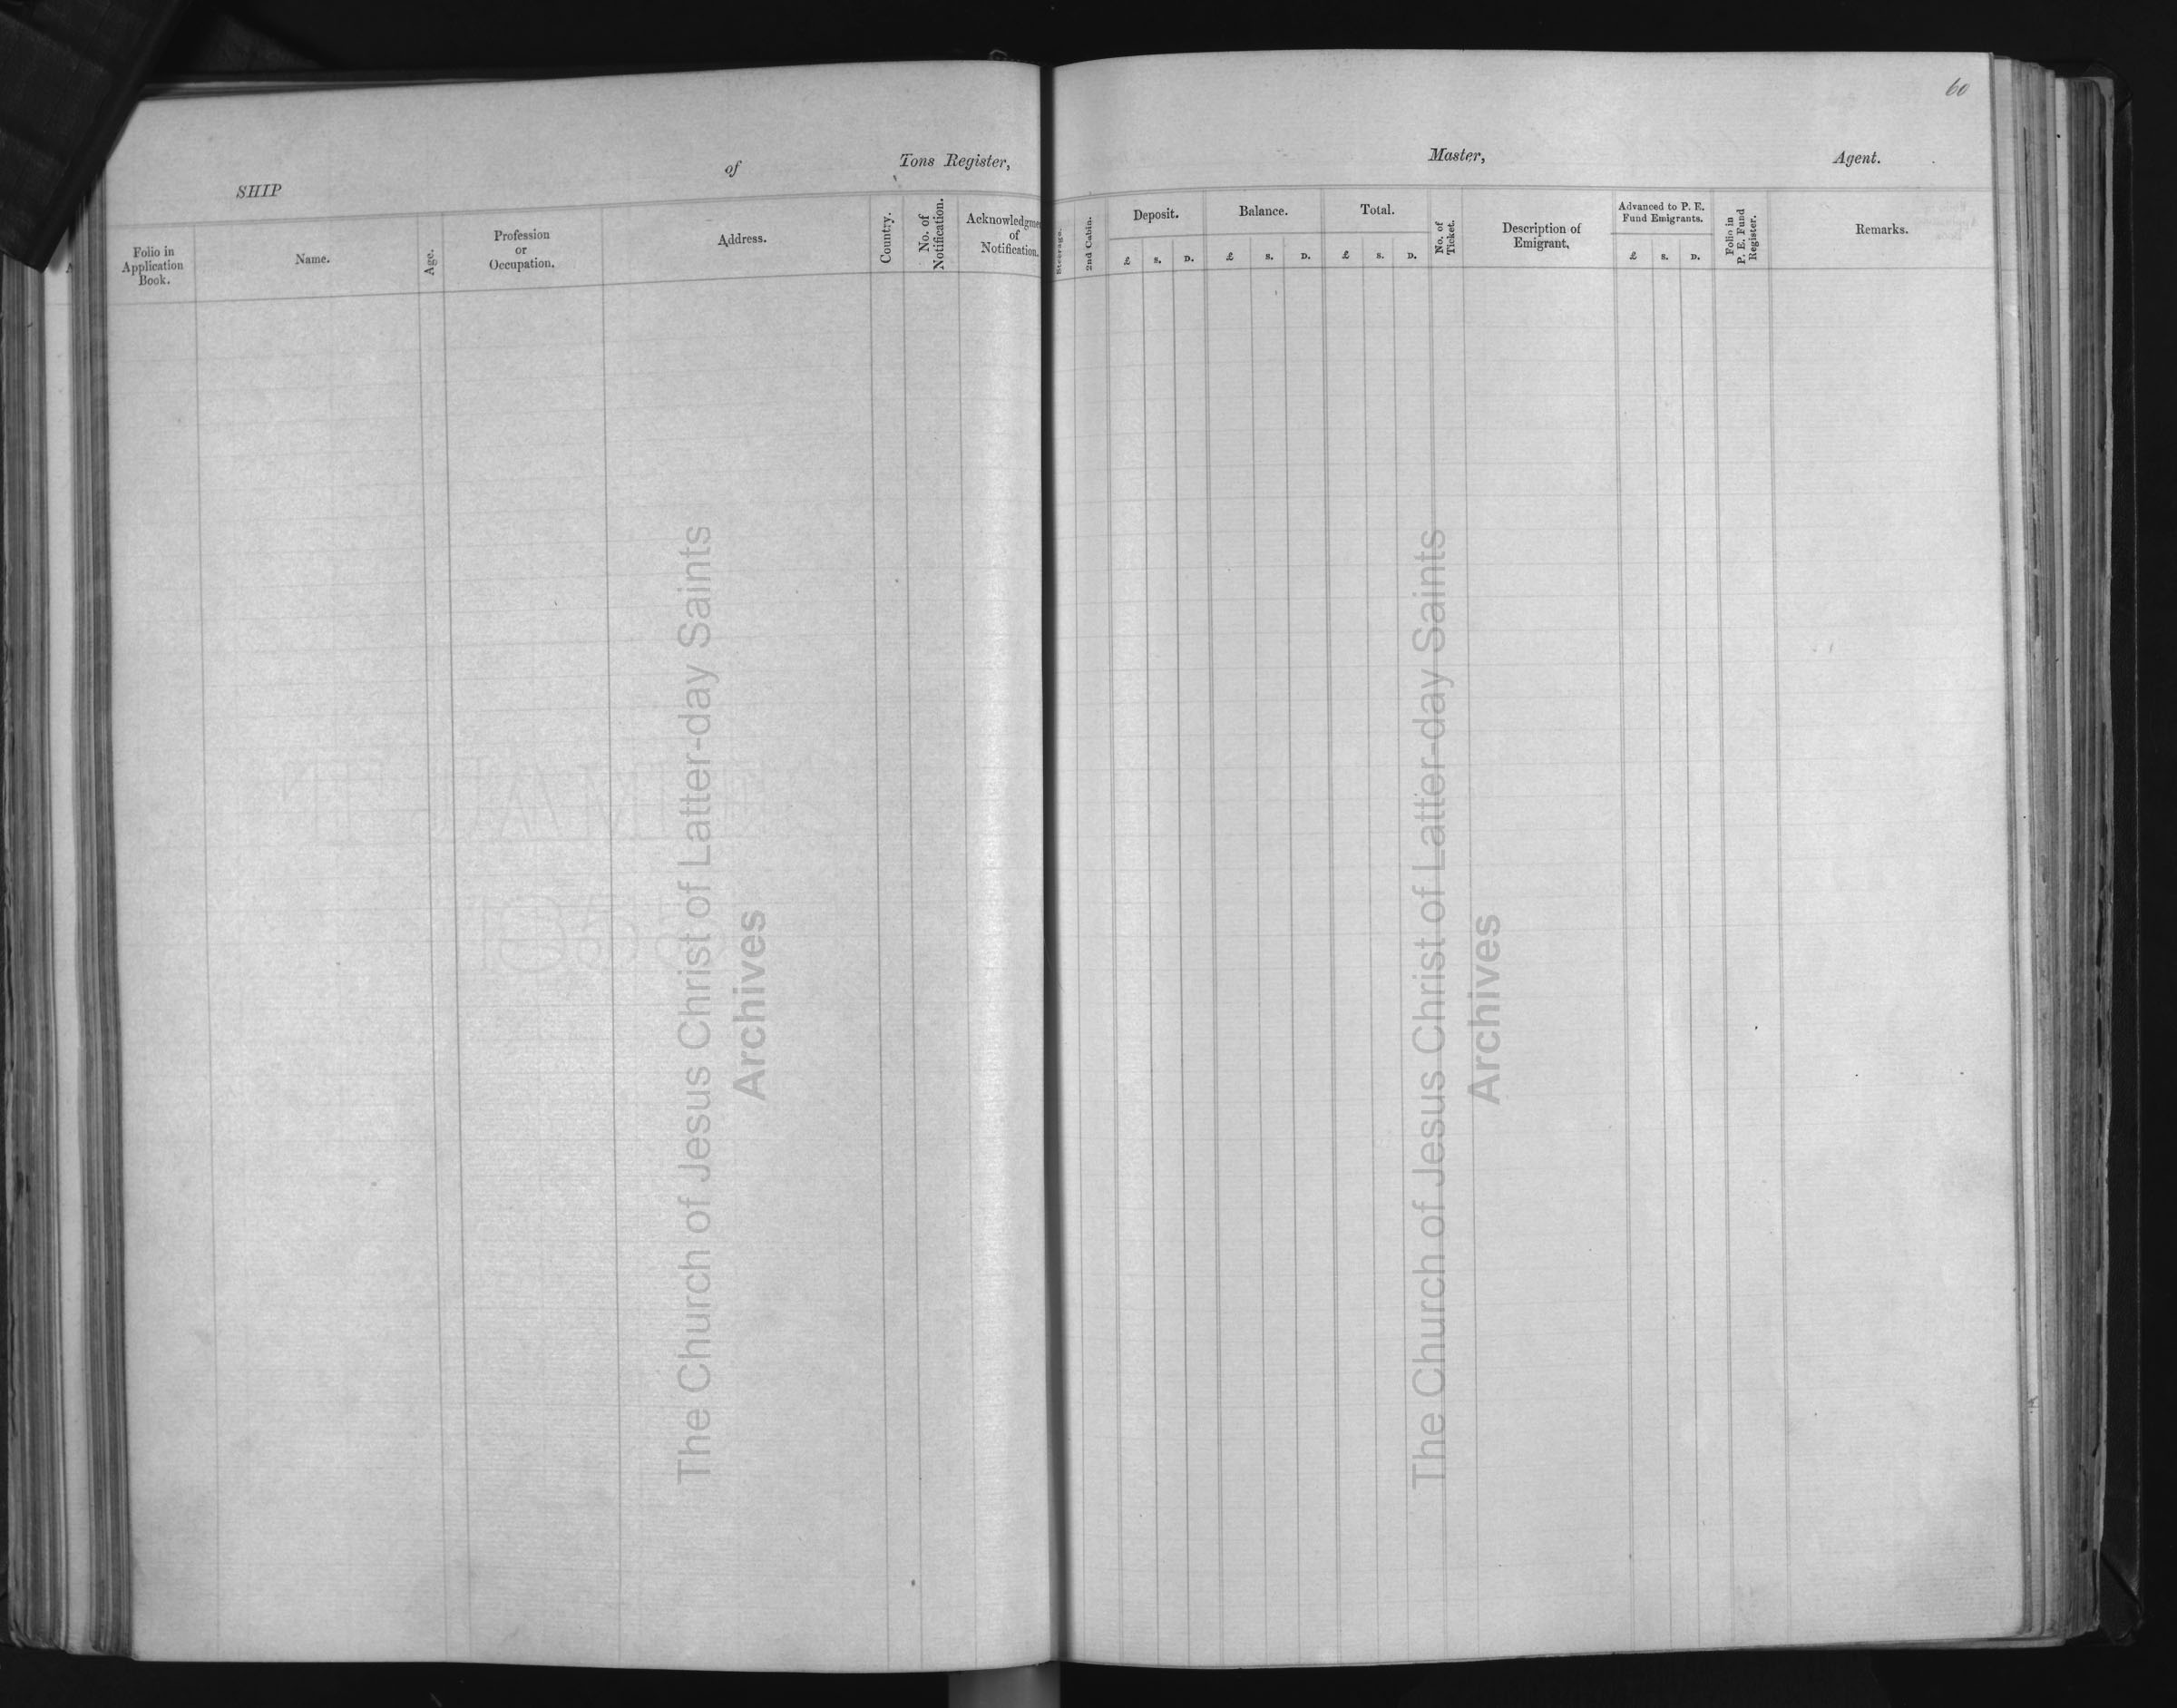 60
SHIP of Tons Register, Master, Agent.
Folio in
Application
Book.
Name.
Age.
Profession
or
Occupation.
Address.
Country.
No. of
Notification.
Acknowledgme
of
Notification.
Steerage.
2nd Cabin.
Deposit.
£ S. D.
Balance.
£ S. D.
Total.
£ S. D.
No. of
Ticket.
Description of
Emigrant.
Advanced to P. E.
Fund Emigrants.
£ S. D.
Folio in
P. E. Fund
Register.
Remarks.
The Church of Jesus Christ of Latter-day Saints
Archives
The Church of Jesus Christ of Latter-day Saints
Archives